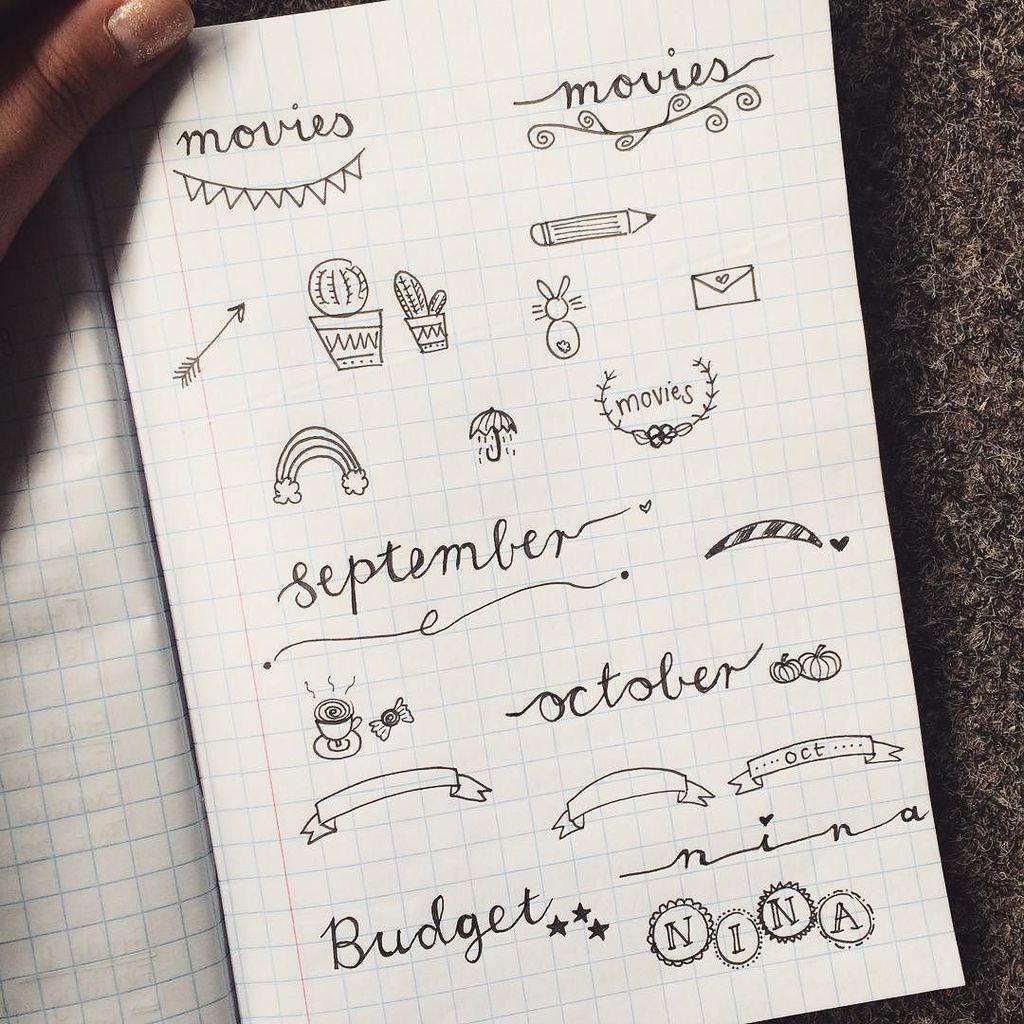 movies
movies
movies
september
october
oct
nina
Budget
NINA